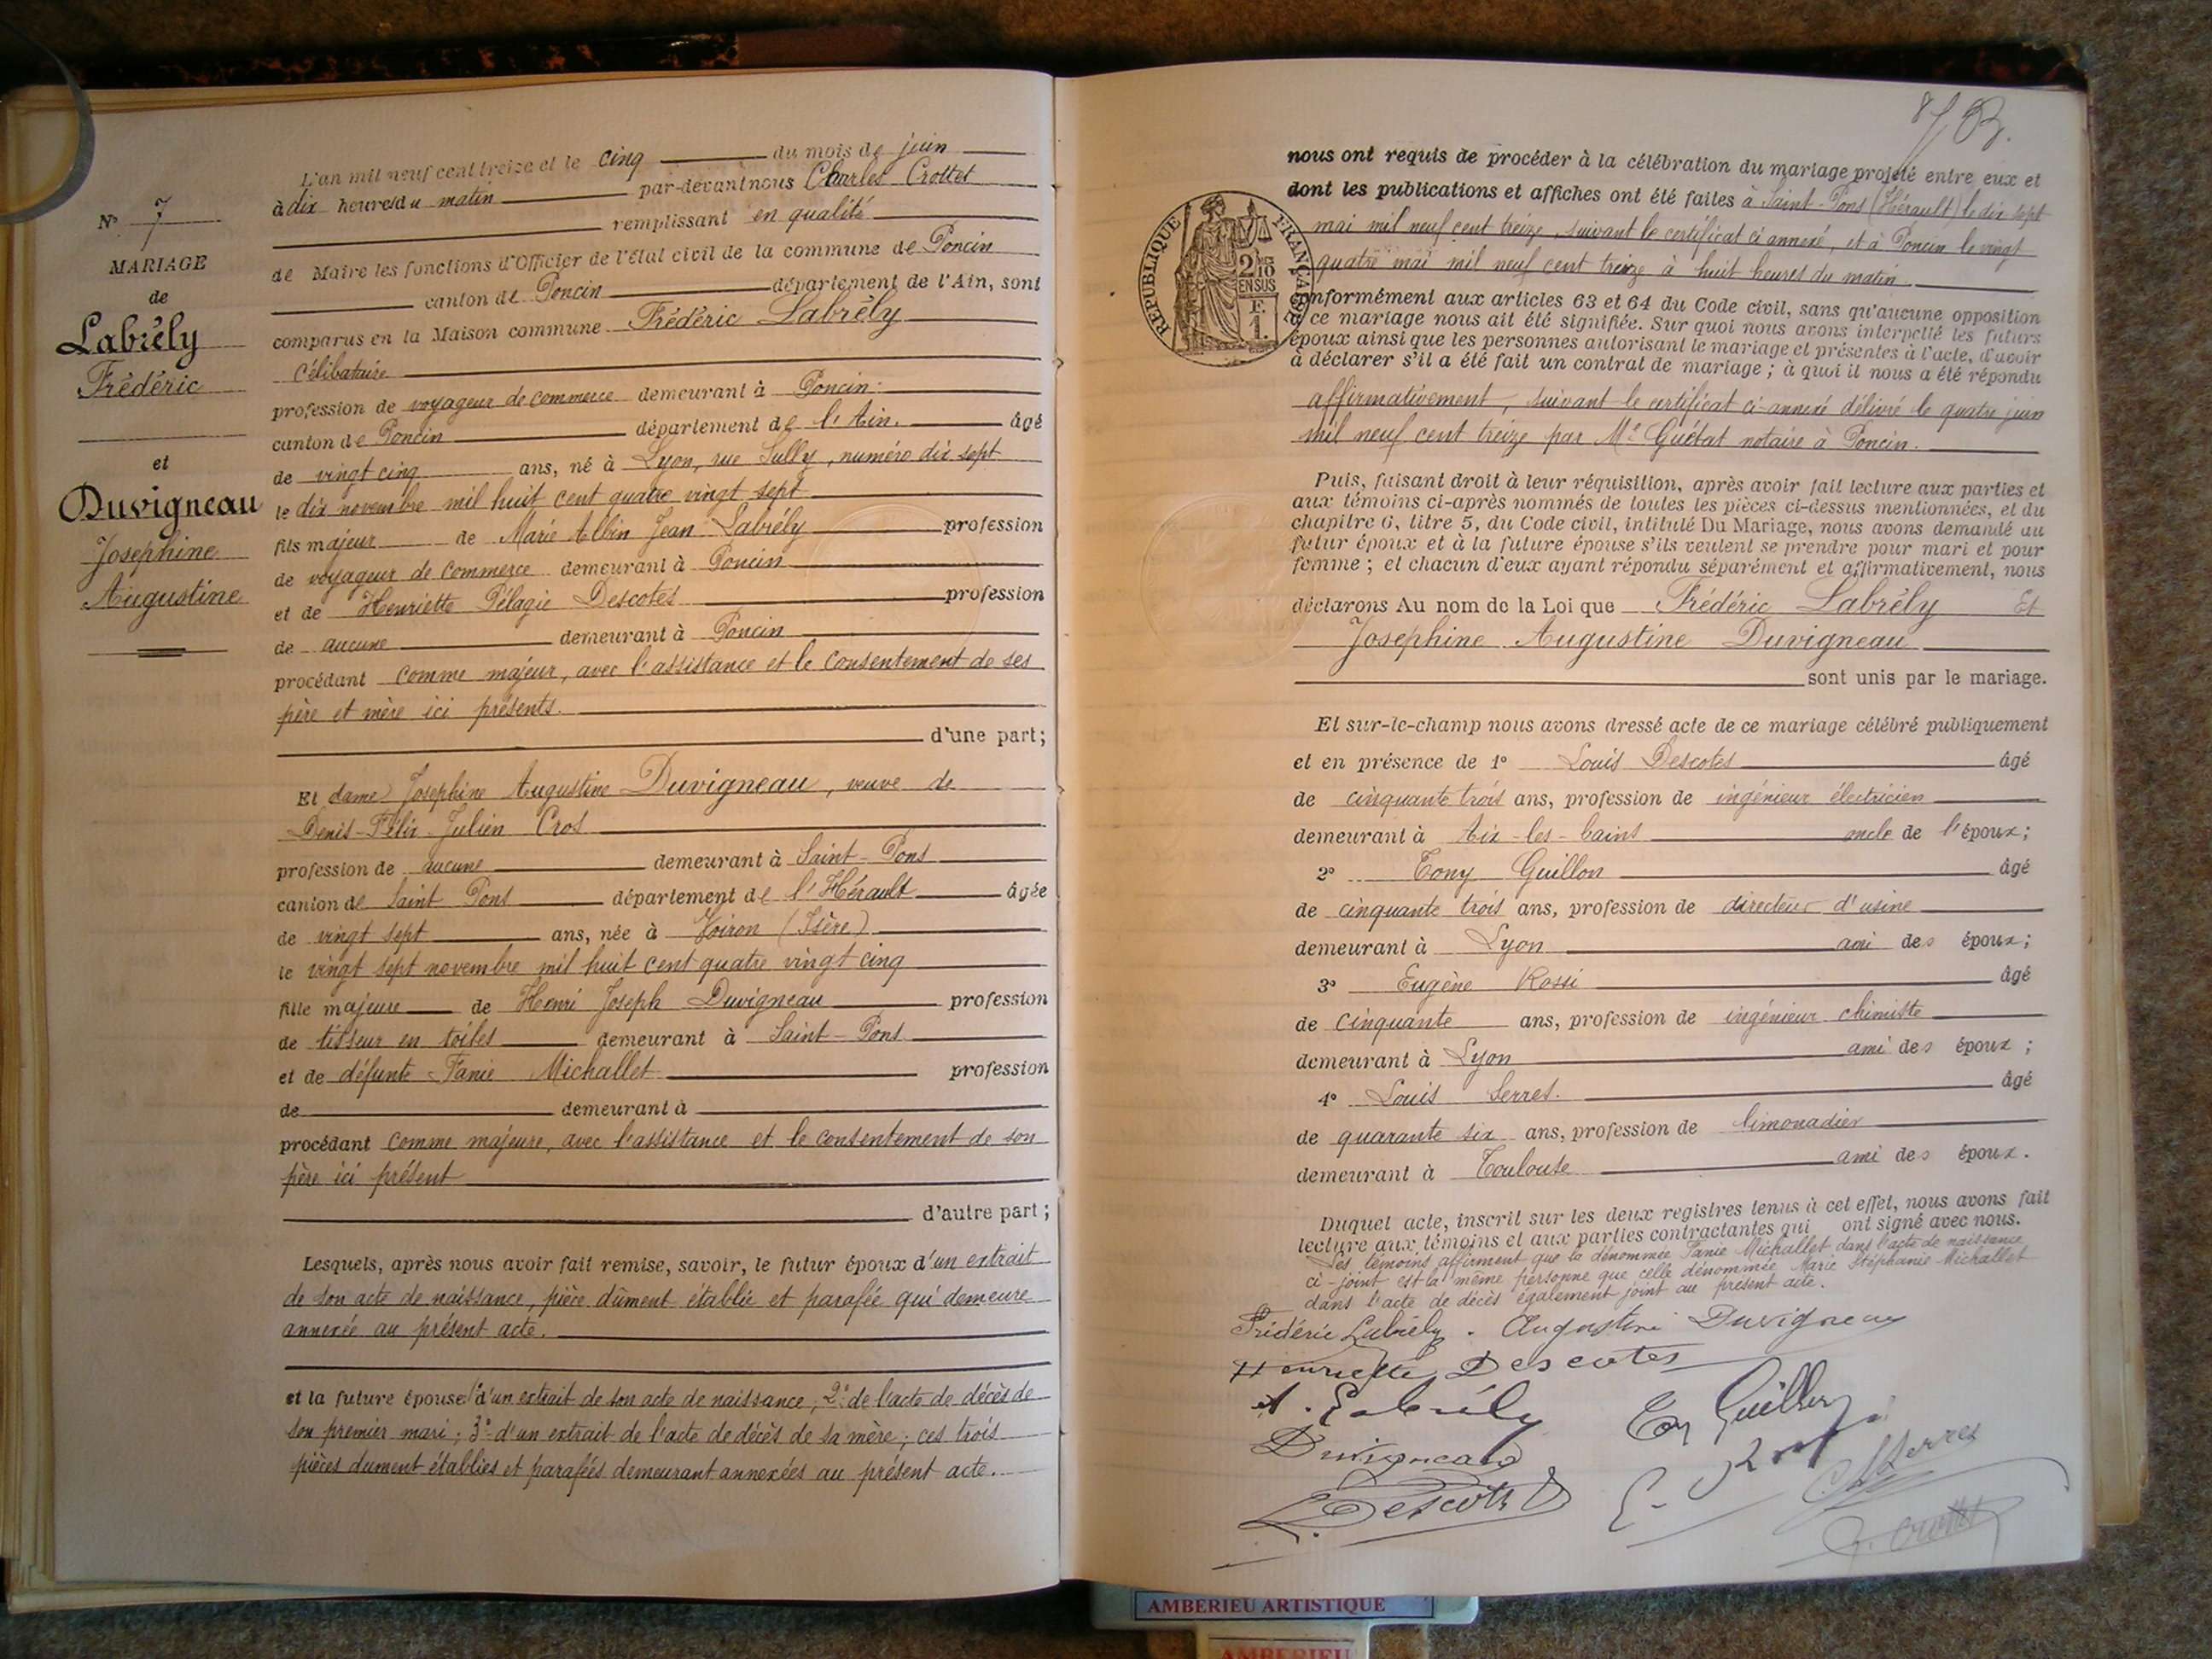 N° 7
MARIAGE
de
Labrély
Frédéric
et
Duvigneau
Josephine
Augustine
L'an mil neuf cent treize et le cinq du mois de juin
à dix heures du matin par-devant nous Charles Crottet
remplissant en qualité
de Maire les fonctions d'Officier de l'état civil de la commune de Poncin
canton de Poncin département de l'Ain, sont
comparus en la Maison commune Frédéric Labrély
célibataire
profession de voyageur de commerce demeurant à Poncin
canton de Poncin département de l'Ain. âgé
de vingt cinq ans, né à Lyon, rue Sully, numéro dix sept
le dix novembre mil huit cent quatre vingt sept
fils majeur de Marie Albin Jean Labrély profession
de voyageur de commerce demeurant à Poncin
et de Henriette Pélagie Descotes profession
de aucune demeurant à Poncin
procédant comme majeur, avec l'assistance et le consentement de ses
père et mère ici présents.
d'une part;
Et dame Josephine Augustine Duvigneau, veuve de
Denis-Félix-Julien Cros
profession de aucune demeurant à Saint-Pons
canton de Saint Pons département de l'Hérault âgée
de vingt sept ans, née à Voiron (Isère)
le vingt sept novembre mil huit cent quatre vingt cinq
fille majeure de Henri Joseph Duvigneau profession
de tisseur en toiles demeurant à Saint-Pons
et de défunte Fanie Michallet profession
de demeurant à
procédant comme majeure, avec l'assistance et le consentement de son
père ici présent
d'autre part;
Lesquels, après nous avoir fait remise, savoir, le futur époux d'un extrait
de son acte de naissance, pièce dûment établie et parafée qui demeure
annexée au présent acte.
et la future épouse 1° d'un extrait de son acte de naissance; 2° de l'acte de décès de
son premier mari; 3° d'un extrait de l'acte de décès de sa mère; ces trois
pièces dument établies et parafées demeurant annexées au présent acte.
nous ont requis de procéder à la célébration du mariage projeté entre eux et
dont les publications et affiches ont été faites à Saint-Pons (Hérault) le dix sept
mai mil neuf cent treize, suivant le certificat ci annexé, et à Poncin le vingt
quatre mai mil neuf cent treize à huit heures du matin.
RÉPUBLIQUE FRANÇAISE
2/10 EN SUS
F. 1.
conformément aux articles 63 et 64 du Code civil, sans qu'aucune opposition
à ce mariage nous ait été signifiée. Sur quoi nous avons interpellé les futurs
époux ainsi que les personnes autorisant le mariage et présentes à l'acte, d'avoir
à déclarer s'il a été fait un contrat de mariage; à quoi il nous a été répondu
affirmativement, suivant le certificat ci-annexé délivré le quatre juin
mil neuf cent treize par Me Guétat notaire à Poncin.
Puis, faisant droit à leur réquisition, après avoir fait lecture aux parties et
aux témoins ci-après nommés de toutes les pièces ci-dessus mentionnées, et du
chapitre 6, titre 5, du Code civil, intitulé Du Mariage, nous avons demandé au
futur époux et à la future épouse s'ils veulent se prendre pour mari et pour
femme; et chacun d'eux ayant répondu séparément et affirmativement, nous
déclarons Au nom de la Loi que Frédéric Labrély Et
Josephine Augustine Duvigneau
sont unis par le mariage.
Et sur-le-champ nous avons dressé acte de ce mariage célébré publiquement
et en présence de 1° Louis Descotes âgé
de cinquante trois ans, profession de ingénieur électricien
demeurant à Aix-les-bains oncle de l'époux;
2° Tony Guillon âgé
de cinquante trois ans, profession de directeur d'usine
demeurant à Lyon ami des époux;
3° Eugène Rossi âgé
de cinquante ans, profession de ingénieur chimiste
demeurant à Lyon ami des époux;
4° Louis Serres. âgé
de quarante six ans, profession de limonadier
demeurant à Toulouse ami des époux.
Duquel acte, inscrit sur les deux registres tenus à cet effet, nous avons fait
lecture aux témoins et aux parties contractantes qui ont signé avec nous.
Les témoins affirment que la dénommée Fanie Michallet dans l'acte de naissance
ci-joint est la même personne que celle dénommée Marie Stéphanie Michallet
dans l'acte de décès également joint au présent acte.
Frédéric Labrély. Augustine Duvigneau
Henriette Descotes
A. Labrély
Duvigneau
L. Descotes
Serres
AMBERIEU ARTISTIQUE
AMBERIEU